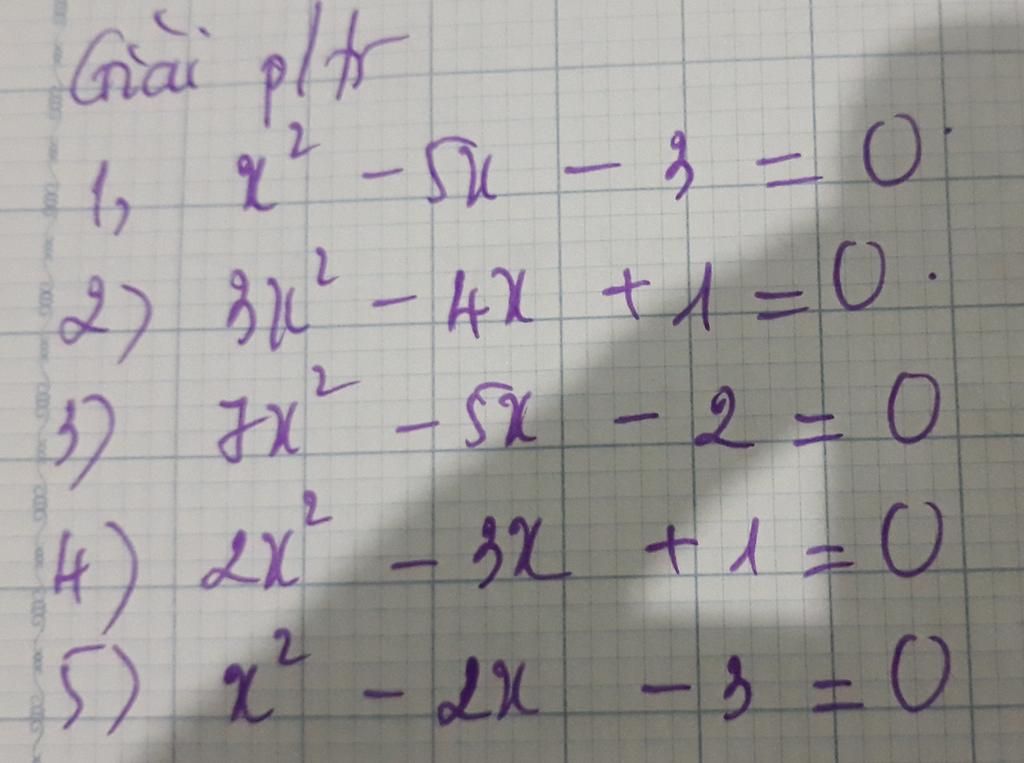 Giải p/tr
1, x² - 5x - 3 = 0.
2) 3x² - 4x + 1 = 0.
3) 7x² - 5x - 2 = 0
4) 2x² - 3x + 1 = 0
5) x² - 2x - 3 = 0